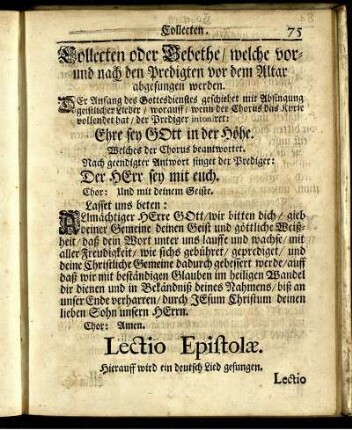 Collecten. 75
Collecten oder Gebethe/ welche vor-
und nach den Predigten vor dem Altar
abgesungen werden.
DEr Anfang des Gottesdienstes geschiehet mit Absingung
geistlicher Lieder/ worauff/ wenn der Chorus das Kyrie
vollendet hat/ der Prediger intoniret:
Ehre sey GOtt in der Höhe.
Welches der Chorus beantwortet.
Nach geendigter Antwort singet der Prediger:
Der HErr sey mit euch.
Chor: Und mit deinem Geiste.
Lasset uns beten:
ALlmächtiger HErre GOtt/ wir bitten dich/ gieb
deiner Gemeine deinen Geist und göttliche Weiß-
heit/ daß dein Wort unter uns lauffe und wachse/ mit
aller Freudigkeit/ wie sichs gebühret/ geprediget/ und
deine Christliche Gemeine dadurch gebessert werde/ auff
daß wir mit beständigen Glauben im heiligen Wandel
dir dienen und in Bekändniß deines Nahmens/ biß an
unser Ende verharren/ durch JEsum Christum deinen
lieben Sohn unsern HErrn.
Chor: Amen.
Lectio Epistolæ.
Hierauff wird ein deutsch Lied gesungen.
Lectio